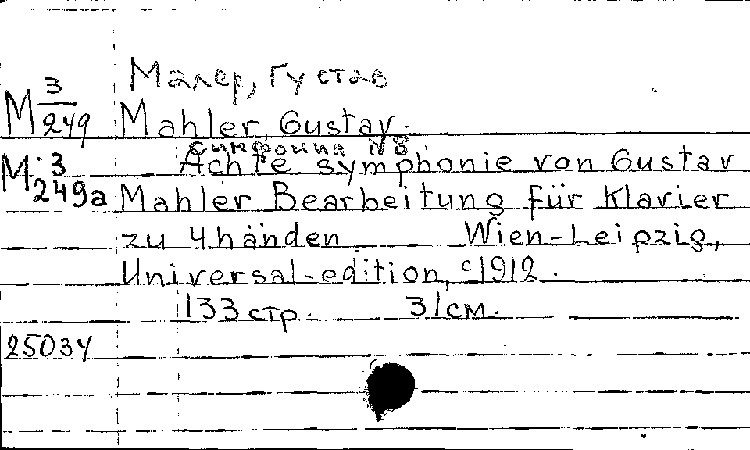 Малер, Густав
М 3/249 Mahler, Gustav.
Симфония №8
М 3/249а Achte symphonie von Gustav
Mahler Bearbeitung für Klavier
zu 4 händen Wien-Leipzig,
Universal-edition, c1912.
133 стр. 31 см.
25034